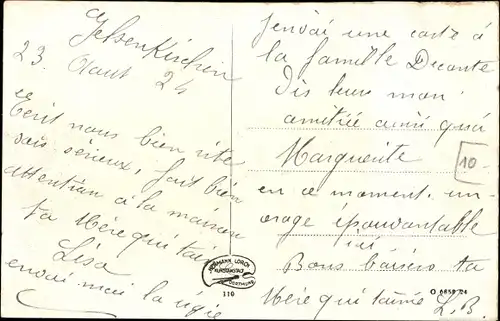 Gelsenkirchen
23 Aout 24
Ecrit nous bien vite
sois sérieux, fait bien
attention à la maison
ta Mère qui t'aime
Lisa
envoi moi la
J'envoi une carte à
la famille Decante
Dis leurs mon
amitiée ainsi qu'a
Marguerite
10
en ce moment un
orage épouvantable
ici
Bons baisers ta
Mère qui t'aime L. B.
HERMANN LORCH
KUNSTANSTALT
DORTMUND
110
O 6858 24